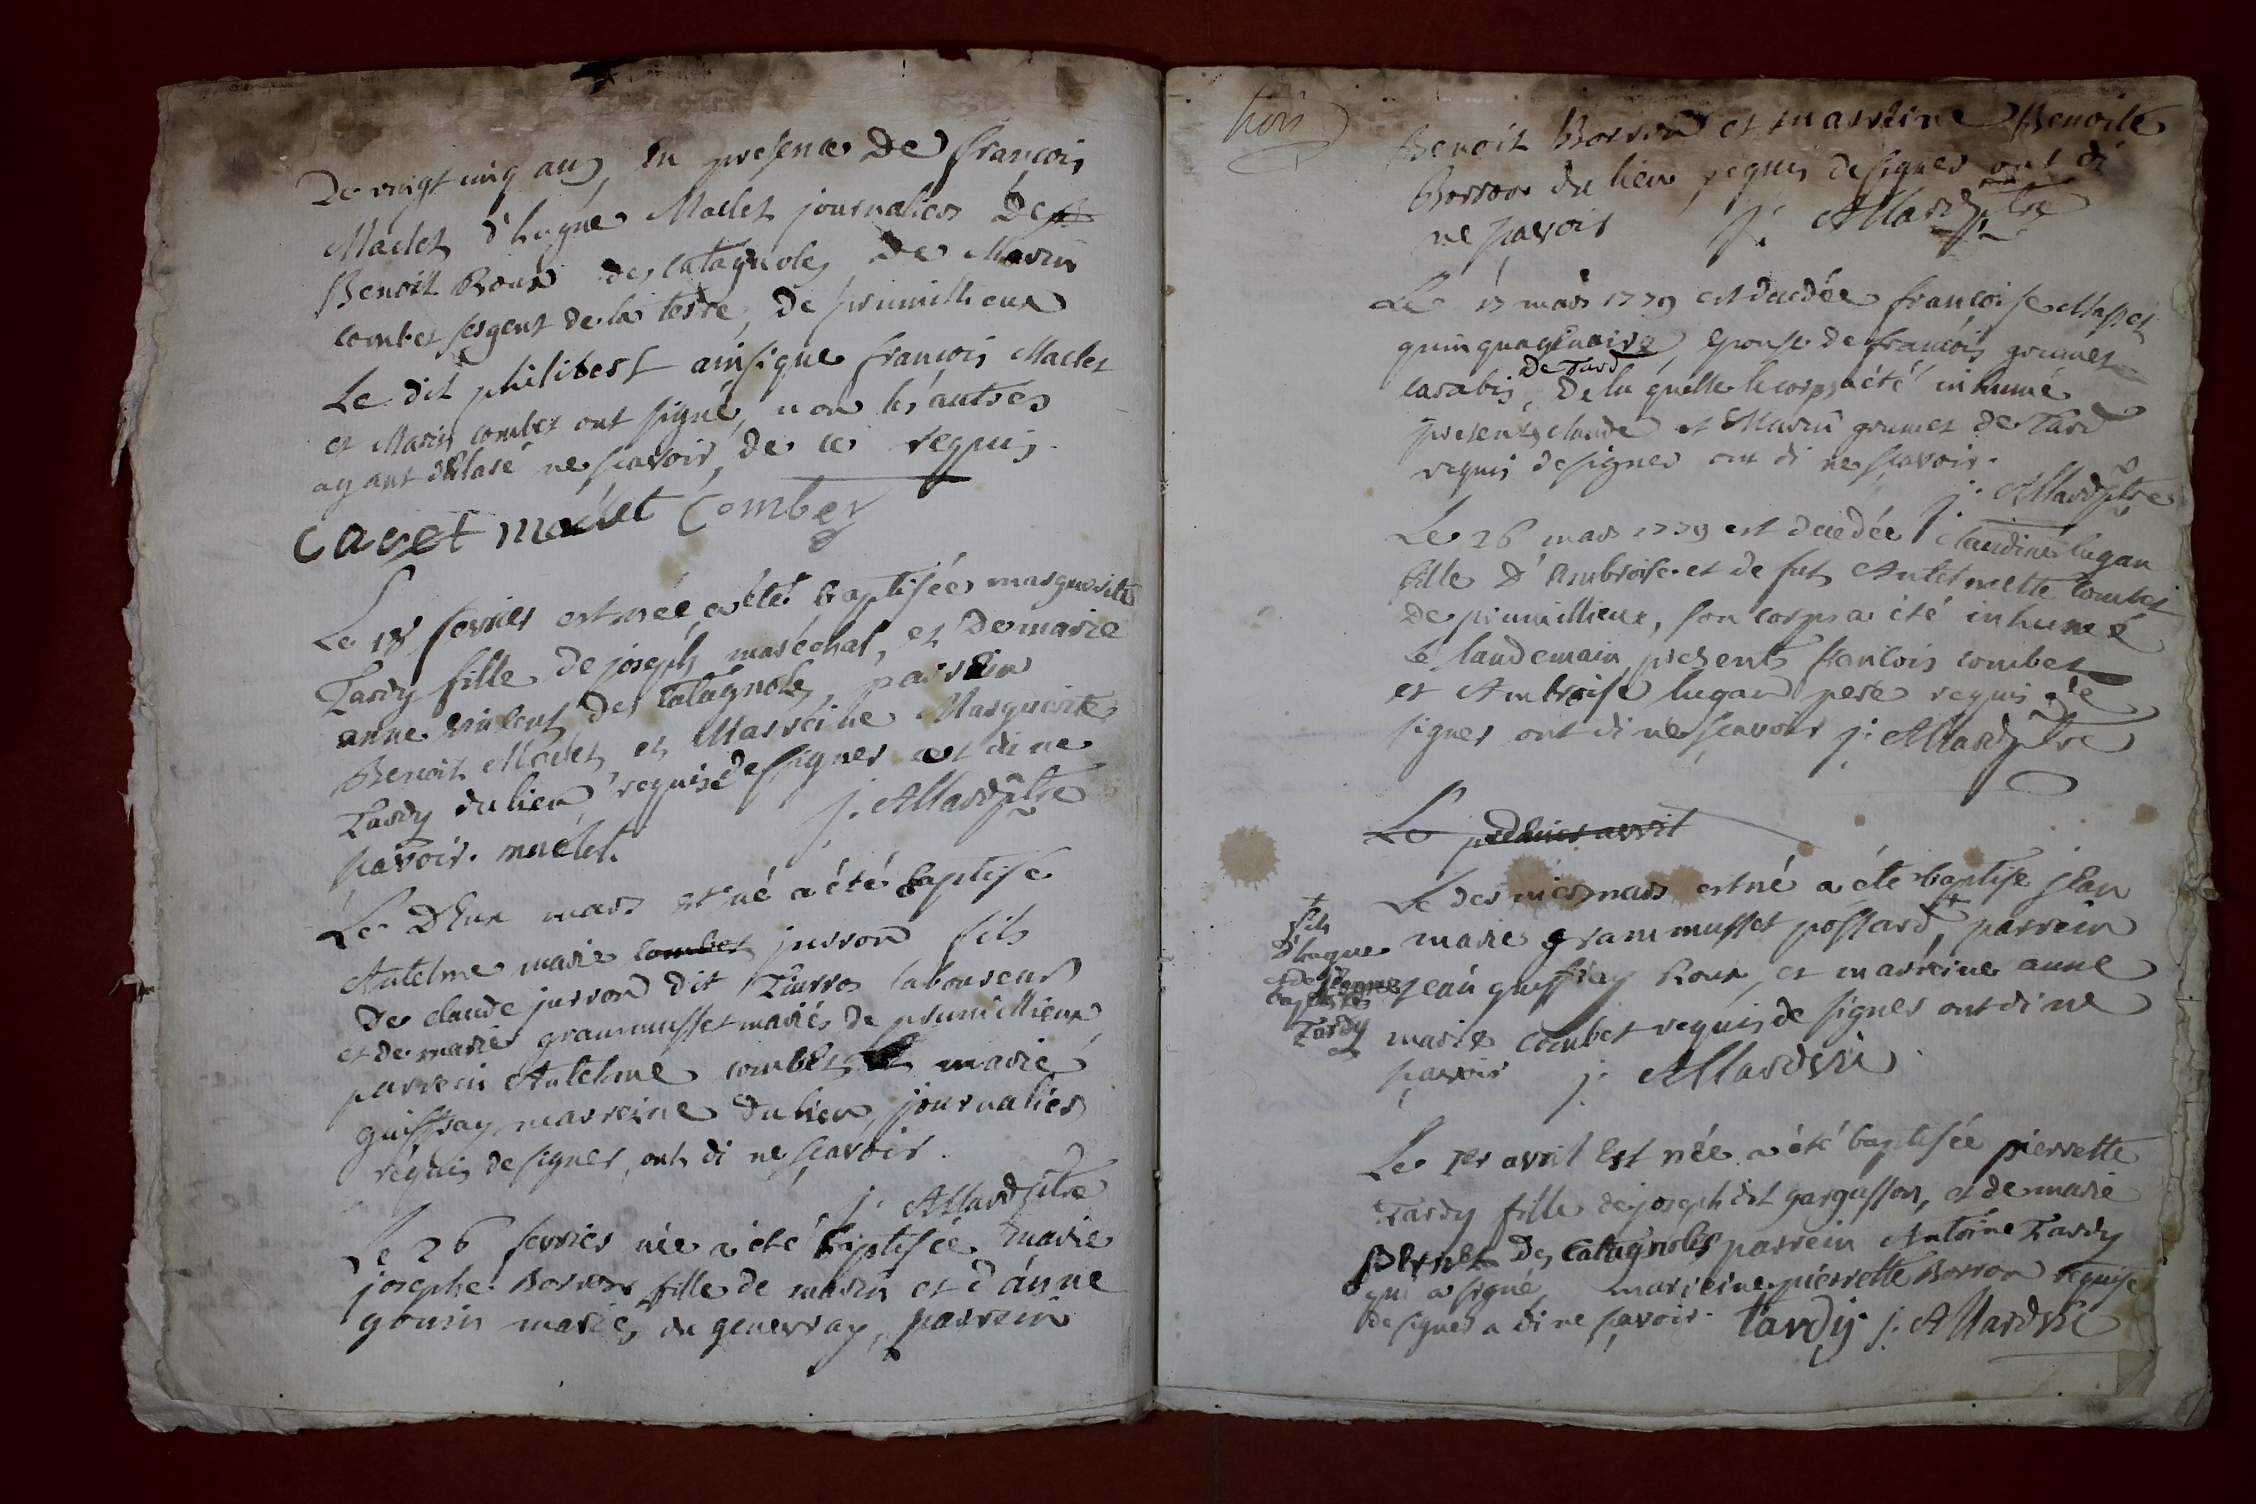 De vingt cinq ans, En presence De françois
Maclet d'hugue Maclet journalier De
Benoit Roux des catagnoles De Marin
combet sergent de la terre, De primillieux
Le dit philibert ainsique françois Maclet
et Marin combet ont signé, non les autres
ayant déclaré ne scavoir, de ce requis.
Cavet maclet Combet
Le 18 fevrier est née a été baptisée marguerite
Tardy fille de joseph maréchal, et De marie
anne vincent des Catagnoles, parrein
Benoit Maclet et Marreine Marguerite
Tardy du lieu requise de signer a di ne
scavoir. maclet. j. Allard ptre
Le Deux mars est né a été baptisé
Antelme marie combet jurron fils
De claude jurron dit laboureur
et de marie grammusset mariés de primillieux
parrein Antelme combet et marie
guiffray marreine du lieu, journalier
requis de signer, ont di ne scavoir.
j. Allard ptre
Le 26 fevrier née a été baptisée marie
josephe Borron fille de marin et d'anne
gonin mariés du genevray, parrein
trois
Benoit Borron et marreine Benoite
Borron du lieu requis de signer ont di
ne scavoir j. Allard ptre
Le 17 mars 1779 est decedée françoise Masset
quinquagenaire, Epouse de françois grumet
De Tard
carabis, De laquelle le corps a été inhumé
presents claude et Marin grumet de Tard
requis de signer ont di ne scavoir.
j. Allard ptre
Le 26 mars 1779 est decedée Claudine lugan
fille D'Ambroise et de fut Antelmette Combet
De primillieux, son corps a été inhumé
le landemain presents francois combet
et Ambroise lugan pere requis de
signer ont di ne scavoir j. Allard ptre
Le premier avril
Le dernier mars est né a été baptisé jean
marie grammusset possard, parrein
+ fils
d'hugue
et de jeanne
baptiste
Tardy
jean guiffray Roux, et marreine anne
marie Combet requis de signer ont di ne
scavoir j. Allard vic
Le 1er avril Est née a été baptisée pierrette
Tardy fille de joseph dit gargusson, et de marie
Bernet Des Catagnoles parrein Antoine Tardy
qui a signé, marreine pierrette Borron requise
de signer a di ne scavoir. tardy j. Allard vic